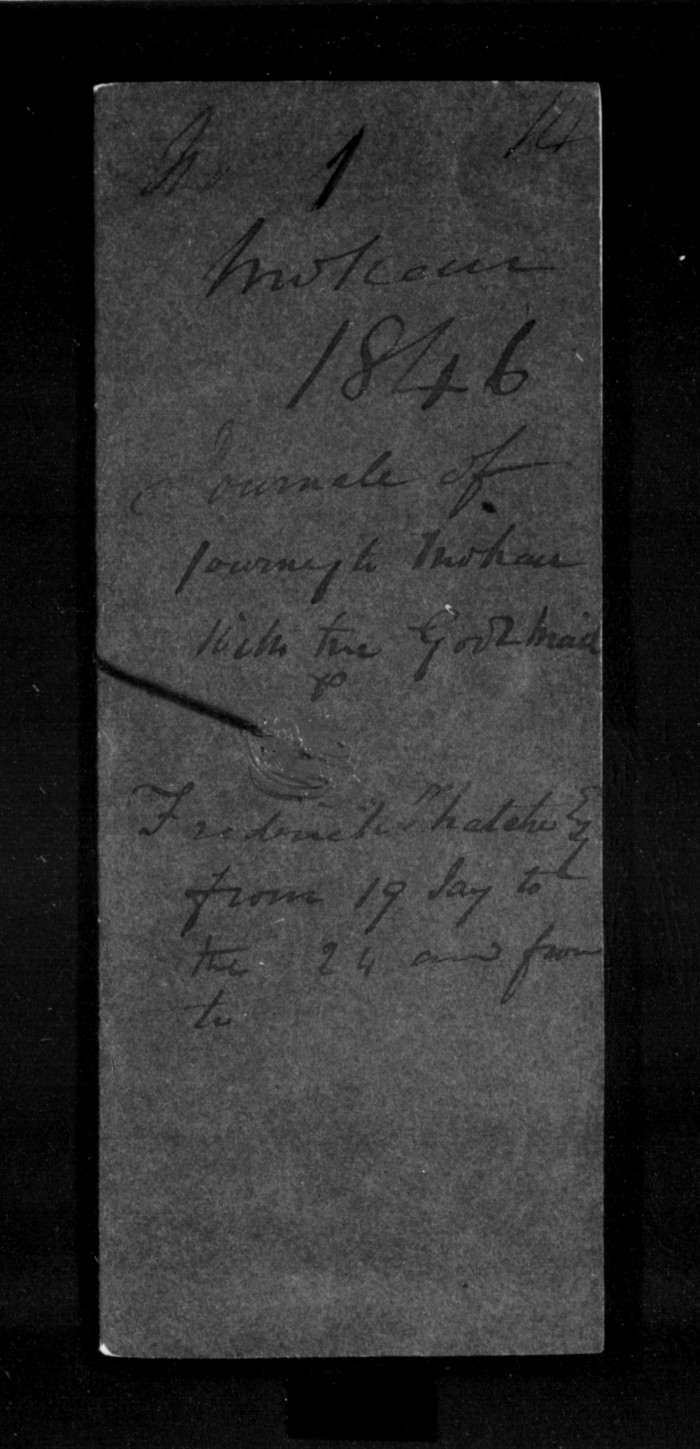 No 1 14
Mokau
1846
Journale of
journey to Mokau
with the Govt Mail
&
Frederick Thatcher Esq
from 19 day to
the 24 and from
to